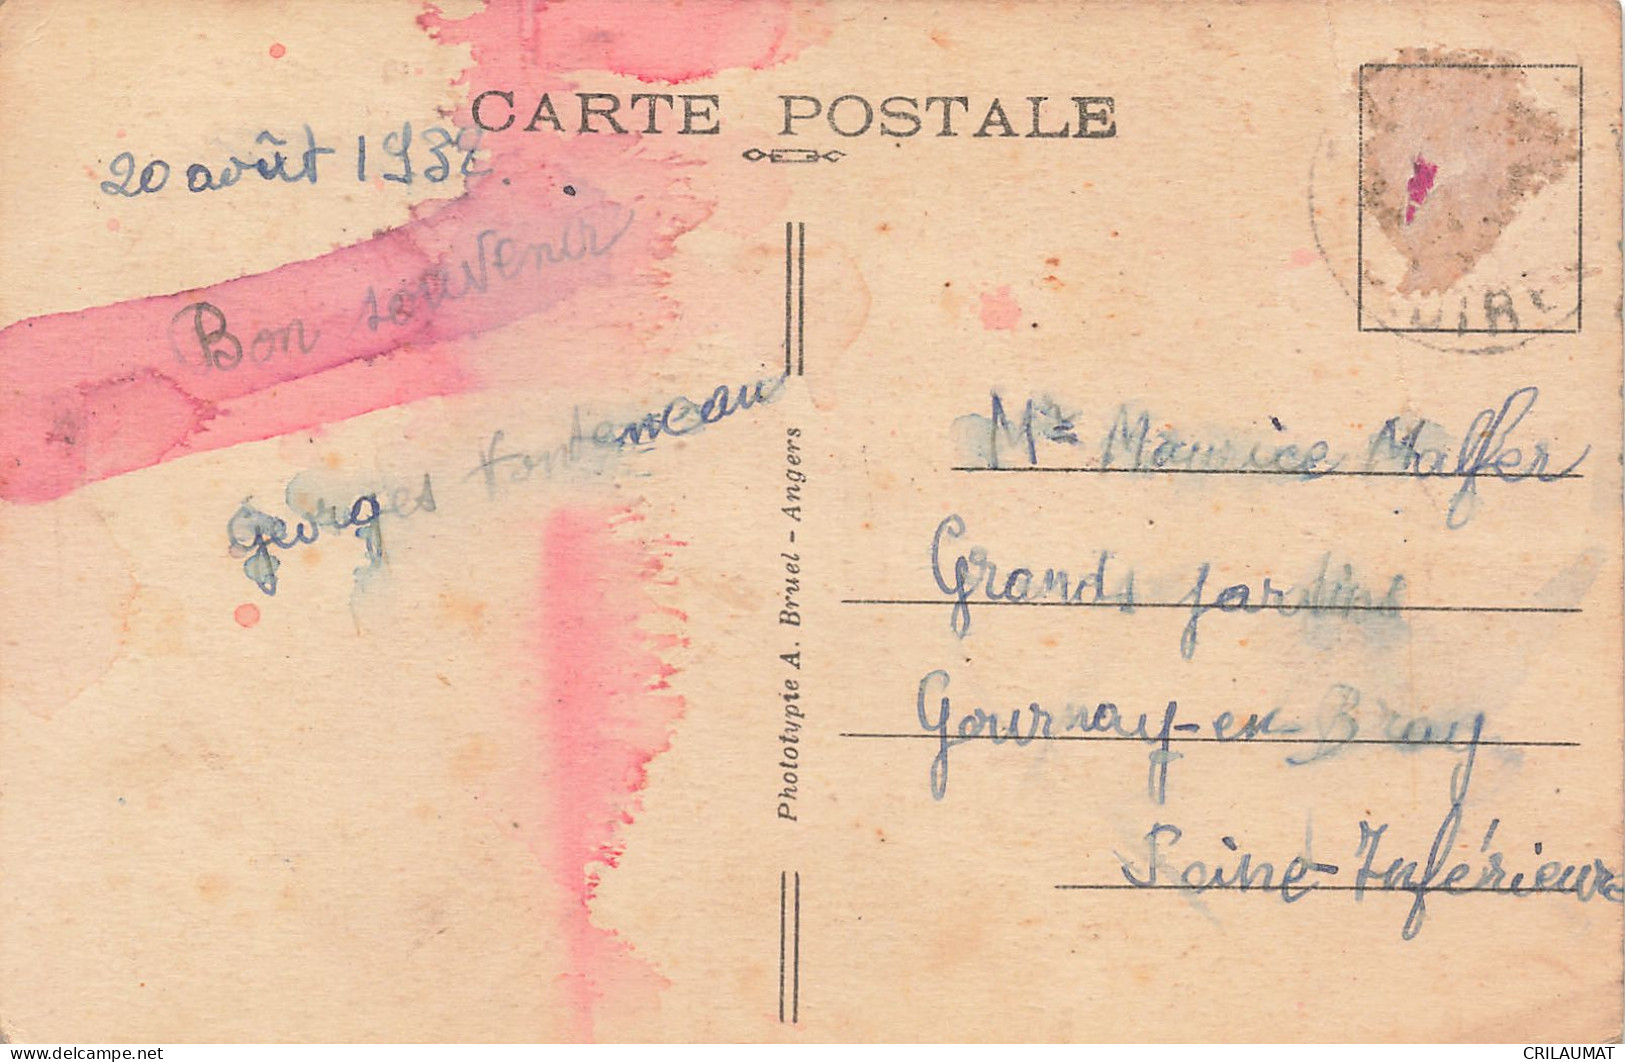 CARTE POSTALE
20 août 1932.
Bon souvenir
Georges Fonteneau
Phototypie A. Bruel - Angers
Mr Maurice Malfer
Grands jardins
Gournay-en-Bray
Seine-Inférieure
CRILAUMAT